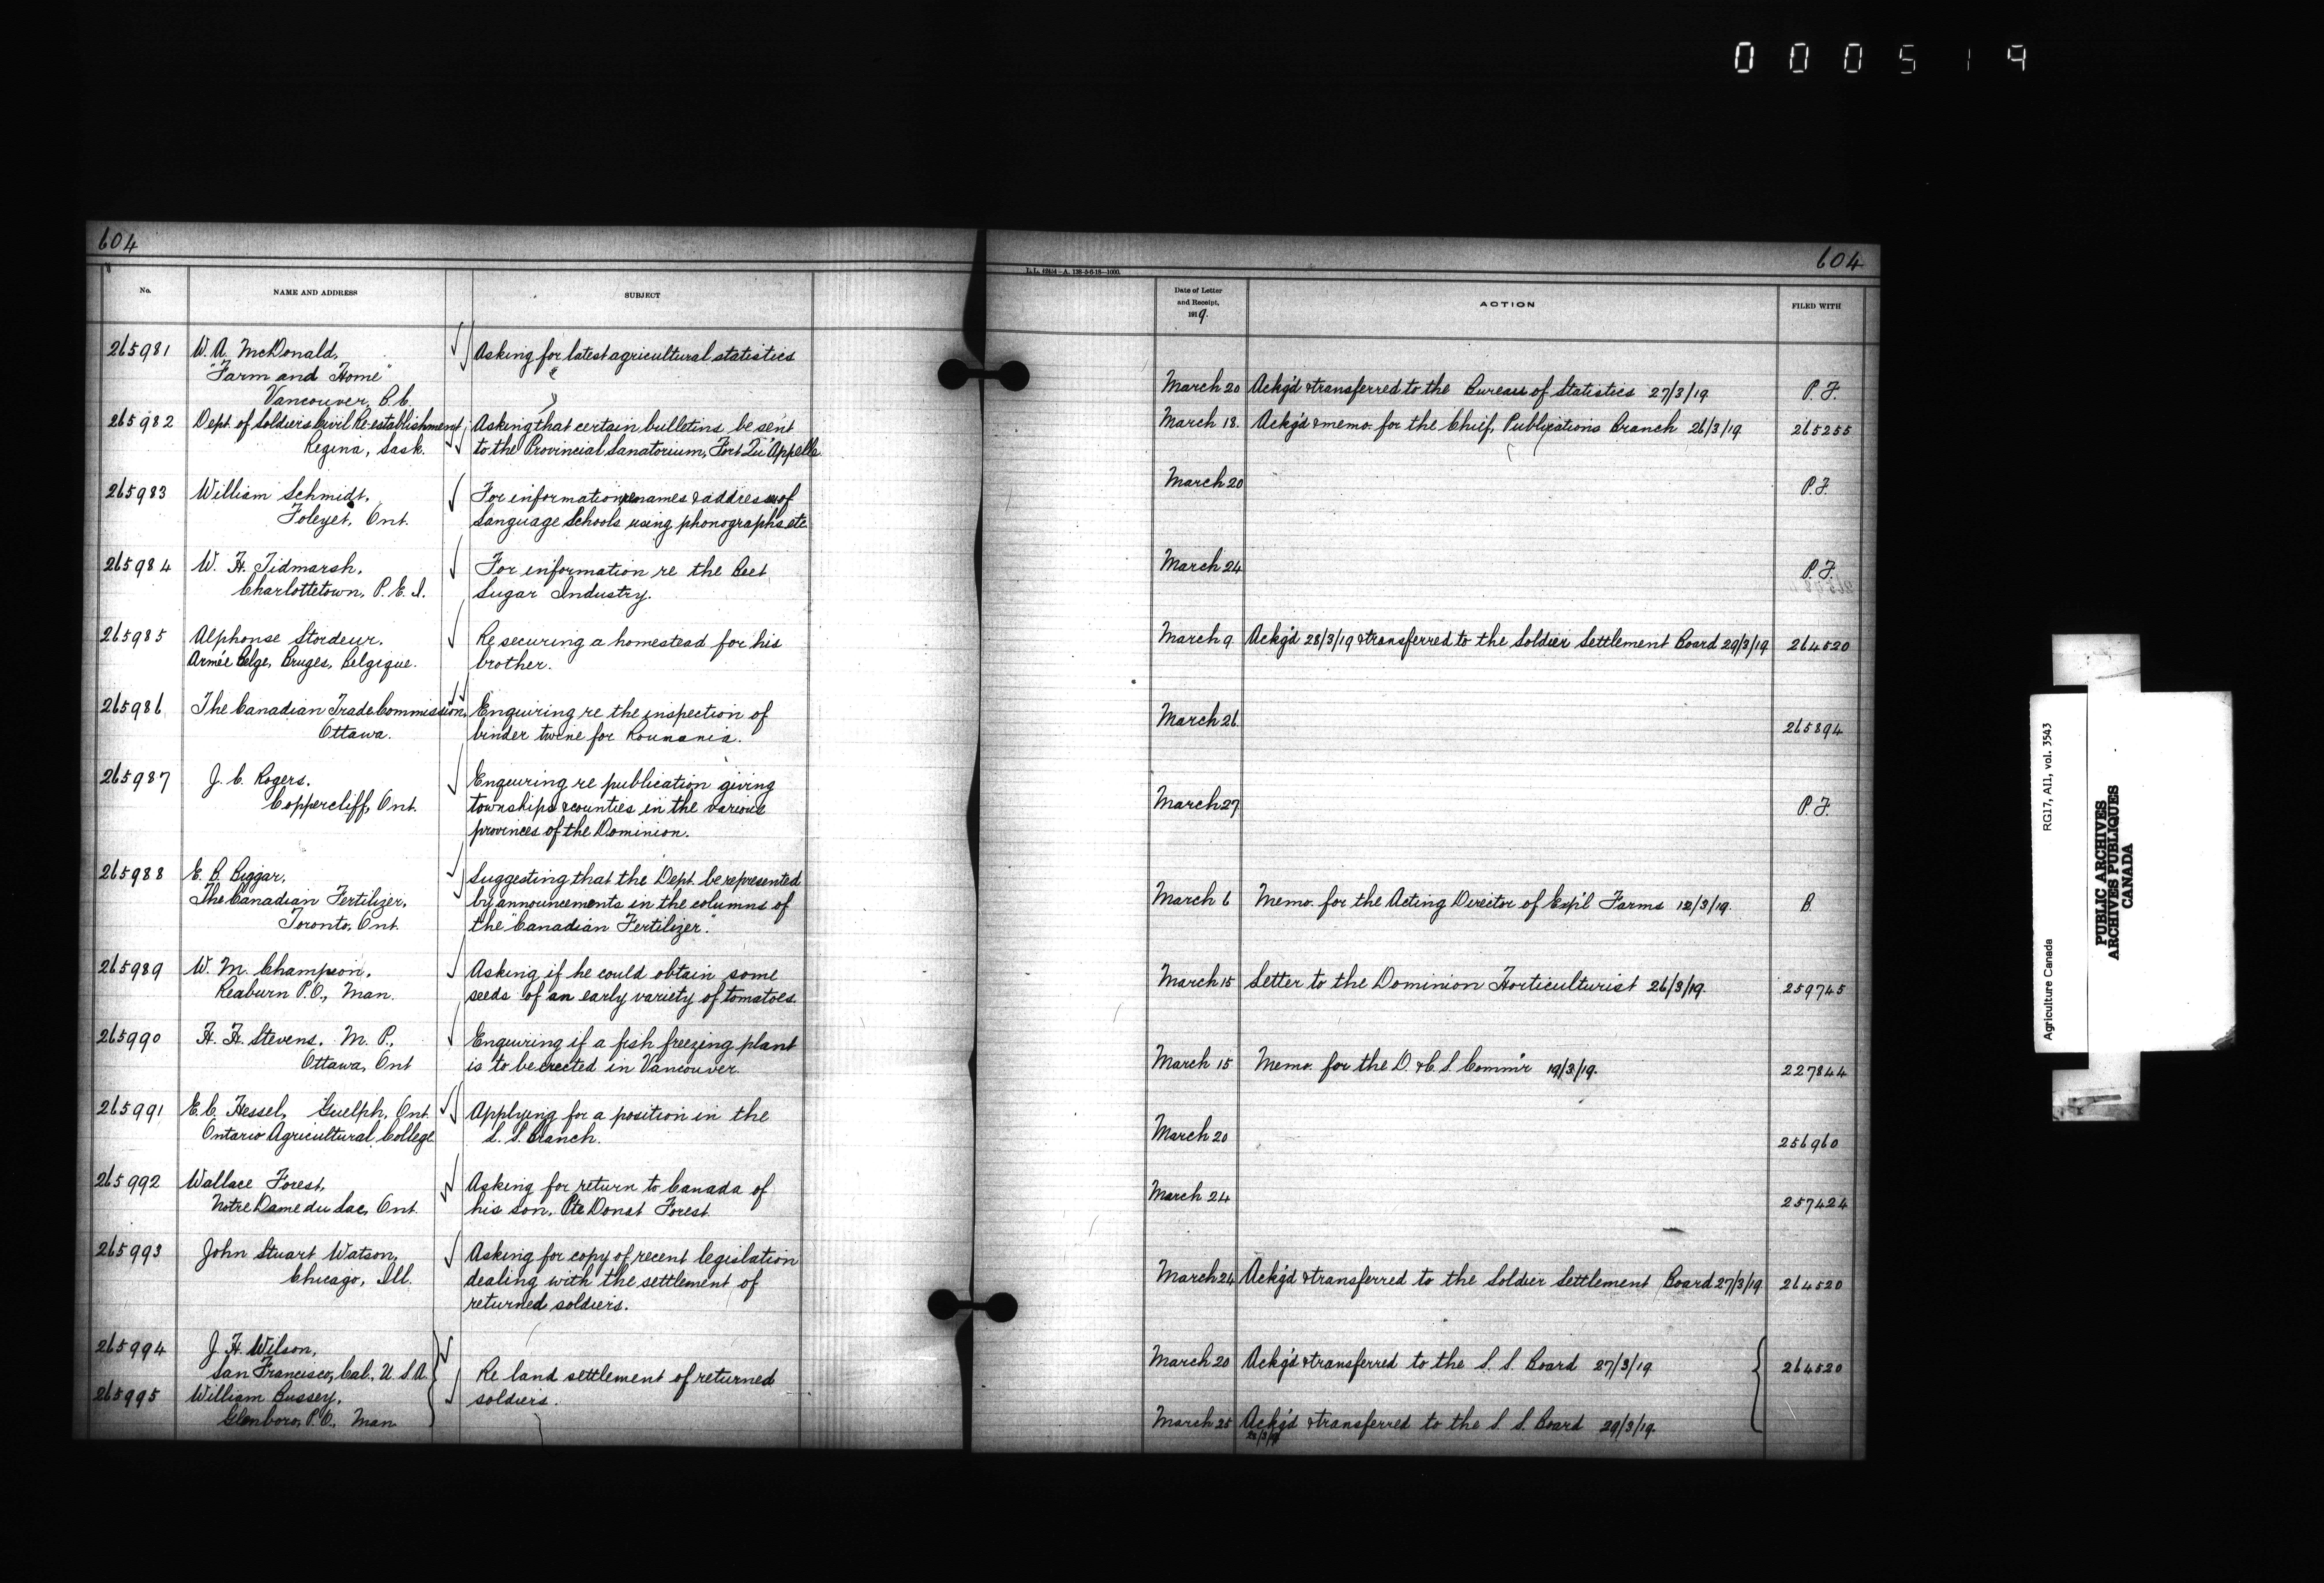 000519
604
No.
NAME AND ADDRESS
SUBJECT
265981
W. A. McDonald,
"Farm and Home"
Vancouver, B.C.
Asking for latest agricultural statistics
265982
Dept. of Soldiers Civil Re-establishment,
Regina, Sask.
Asking that certain bulletins be sent
to the Provincial Sanatorium, Fort Qu'Appelle
265983
William Schmidt,
Foleyet, Ont.
For information re names & addresses of
Language Schools using phonographs etc
265984
W. H. Tidmarsh,
Charlottetown, P.E.I.
For information re the Beet
Sugar Industry.
265985
Alphonse Stordeur,
Armée Belge, Bruges, Belgique.
Re securing a homestead for his
brother.
265986
The Canadian Trade Commission,
Ottawa.
Enquiring re the inspection of
binder twine for Roumania.
265987
J. C. Rogers,
Coppercliff, Ont.
Enquiring re publication giving
townships & counties in the various
provinces of the Dominion.
265988
E. B. Biggar,
The Canadian Fertilizer,
Toronto, Ont.
Suggesting that the Dept. be represented
by announcements in the columns of
the "Canadian Fertilizer."
265989
W. M. Champion,
Reaburn P.O., Man.
Asking if he could obtain some
seeds of an early variety of tomatoes
265990
H. H. Stevens, M. P.,
Ottawa, Ont
Enquiring if a fish freezing plant
is to be erected in Vancouver.
265991
E. C. Hessel, Guelph, Ont.
Ontario Agricultural College
Applying for a position in the
L. S. Branch.
265992
Wallace Forest,
Notre Dame du Lac, Ont.
Asking for return to Canada of
his son, Pte Donat Forest.
265993
John Stuart Watson,
Chicago, Ill.
Asking for copy of recent legislation
dealing with the settlement of
returned soldiers.
265994
J. H. Wilson,
San Francisco, Cal., U.S.A.
265995
William Bussey,
Glenboro, P.O., Man
Re land settlement of returned
soldiers.
604
Date of Letter
and Receipt,
1919.
ACTION
FILED WITH
March 20 Ackg'd & transferred to the Bureau of Statistics 27/3/19 P.F.
March 18. Ackg'd & memo. for the Chief, Publications Branch 26/3/19 265255
March 20 P.F.
March 24 P.F.
March 9. Ackg'd 28/3/19 & transferred to the Soldier Settlement Board 29/3/19 264520
March 26. 265894
March 27. P.F.
March 6 Memo. for the Acting Director of Exp'l Farms 12/3/19. B.
March 15 Letter to the Dominion Horticulturist 26/3/19. 259745
March 15 Memo. for the D. & C. S. Comm'r 19/3/19. 227844
March 20 256960
March 24 257424
March 24 Ackg'd & transferred to the Soldier Settlement Board 27/3/19 264520
March 20 Ackg'd & transferred to the S. S. Board 27/3/19 264520
March 25 Ackg'd & transferred to the S. S. Board 29/3/19.
Agriculture Canada RG17, AI1, vol. 3543
PUBLIC ARCHIVES
ARCHIVES PUBLIQUES
CANADA